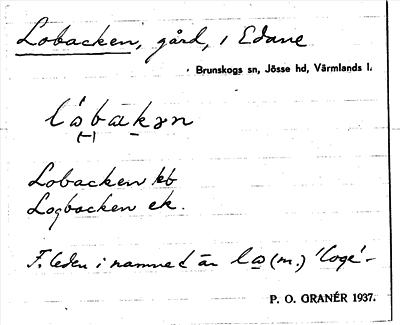 Lobacken, gård, i Edane
Brunskogs sn, Jösse hd, Värmlands l.
Lobacken kb
Logbacken ek.
F. leden i namnet är (m.) 'loge'-
P. O. GRANÉR 1937.